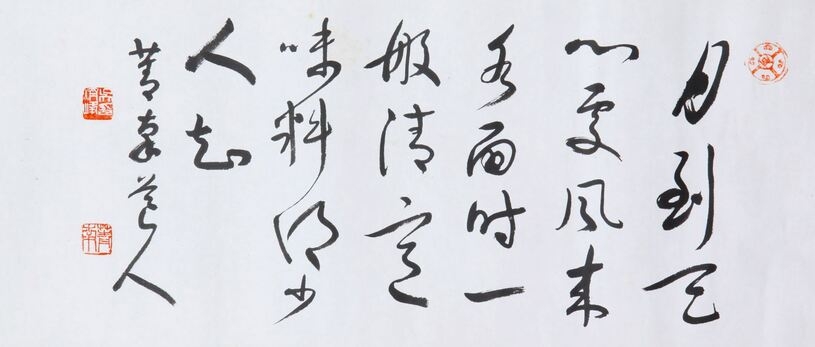 月到天
心處風来
水面时一
般清意
味料得少
人知
菁道人